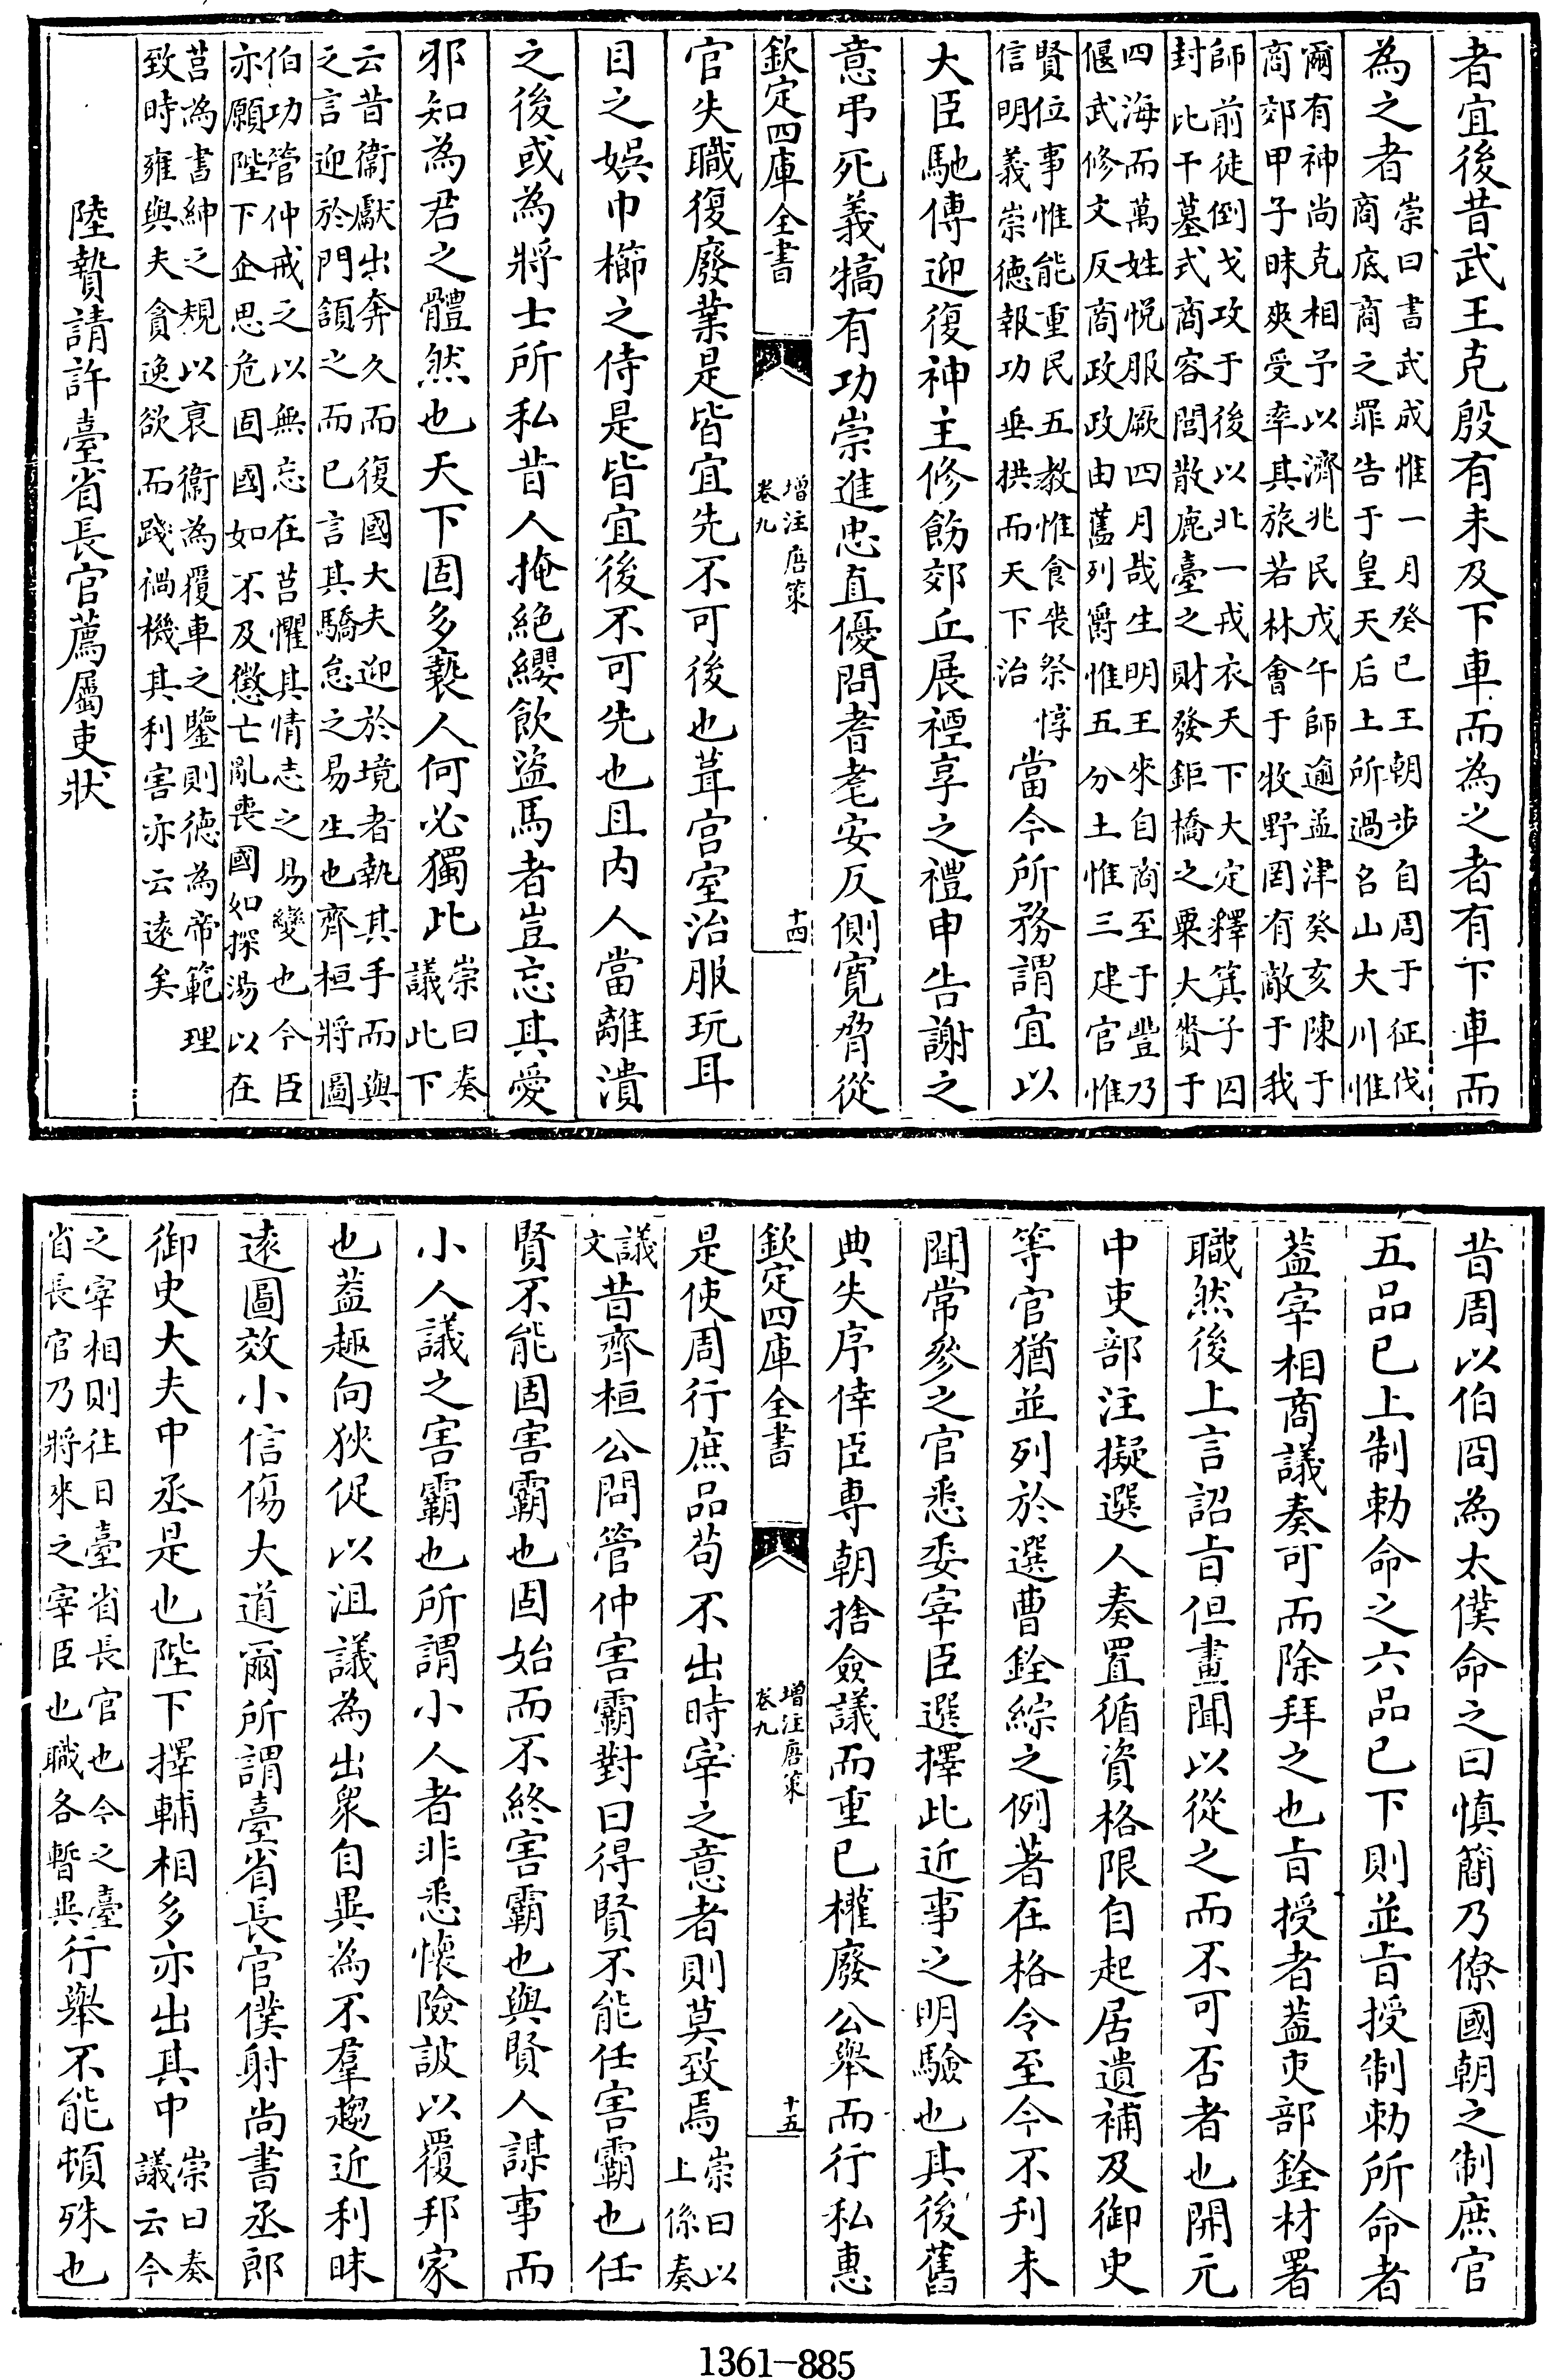 者宜後昔武王克殷有未及下車而為之者有下車而
為之者崇曰書武成惟一月癸巳王朝步自周于征伐
商底商之罪告于皇天后土所過名山大川惟
爾有神尚克相予以濟兆民戊午師逾孟津癸亥陳于
商郊甲子昧爽受率其旅若林會于牧野罔有敵于我
師前徒倒戈攻于後以北一戎衣天下大定釋箕子囚
封比干墓式商容閭散鹿臺之財發鉅橋之粟大賚于
四海而萬姓悅服厥四月哉生明王來自商至于豐乃
偃武修文反商政政由舊列爵惟五分土惟三建官惟
賢位事惟能重民五教惟食喪祭惇
信明義崇德報功垂拱而天下治
當今所務謂宜以
大臣馳傳迎復神主修飭郊丘展禋享之禮申告謝之
意弔死義犒有功崇進忠直優問耆耄安反側寬脅從
欽定四庫全書
增注唐策
卷九
十四
官失職復廢業是皆宜先不可後也葺宮室治服玩耳
目之娛巾櫛之侍是皆宜後不可先也且内人當離潰
之後或為將士所私昔人掩絕纓飲盜馬者豈忘其愛
邪知為君之體然也天下固多褻人何必獨此崇曰奏
議此下
云昔衞獻出奔久而復國大夫迎於境者執其手而與
之言迎於門頷之而已言其驕怠之易生也齊桓將圖
伯功管仲戒之以無忘在莒懼其情志之易變也今臣
亦願陛下企思危固國如不及懲亡亂喪國如探湯以在
莒為書紳之規以衷衞為覆車之鑒則德為帝範理
致時雍與夫貪逸欲而踐禍機其利害亦云遠矣
陸贄請許臺省長官薦屬吏狀
昔周以伯冏為太僕命之曰慎簡乃僚國朝之制庶官
五品已上制勅命之六品已下則並旨授制勅所命者
蓋宰相商議奏可而除拜之也旨授者蓋吏部銓材署
職然後上言詔旨但畫聞以從之而不可否者也開元
中吏部注擬選人奏置循資格限自起居遺補及御史
等官猶並列於選曹銓綜之例著在格令至今不刋未
聞常參之官悉委宰臣選擇此近事之明驗也其後舊
典失序倖臣專朝捨僉議而重已權廢公舉而行私惠
欽定四庫全書
增注唐策
卷九
十五
是使周行庶品苟不出時宰之意者則莫致焉崇曰以
上係奏
議
文
昔齊桓公問管仲害霸對曰得賢不能任害霸也任
賢不能固害霸也固始而不終害霸也與賢人謀事而
小人議之害霸也所謂小人者非悉懷險詖以覆邦家
也蓋趣向狹促以沮議為出眾自異為不羣趨近利昧
遠圖效小信傷大道爾所謂臺省長官僕射尚書丞郎
御史大夫中丞是也陛下擇輔相多亦出其中崇曰奏
議云今
之宰相則往日臺省長官也今之臺
省長官乃將來之宰臣也職各暫異
行舉不能頓殊也
1361-885